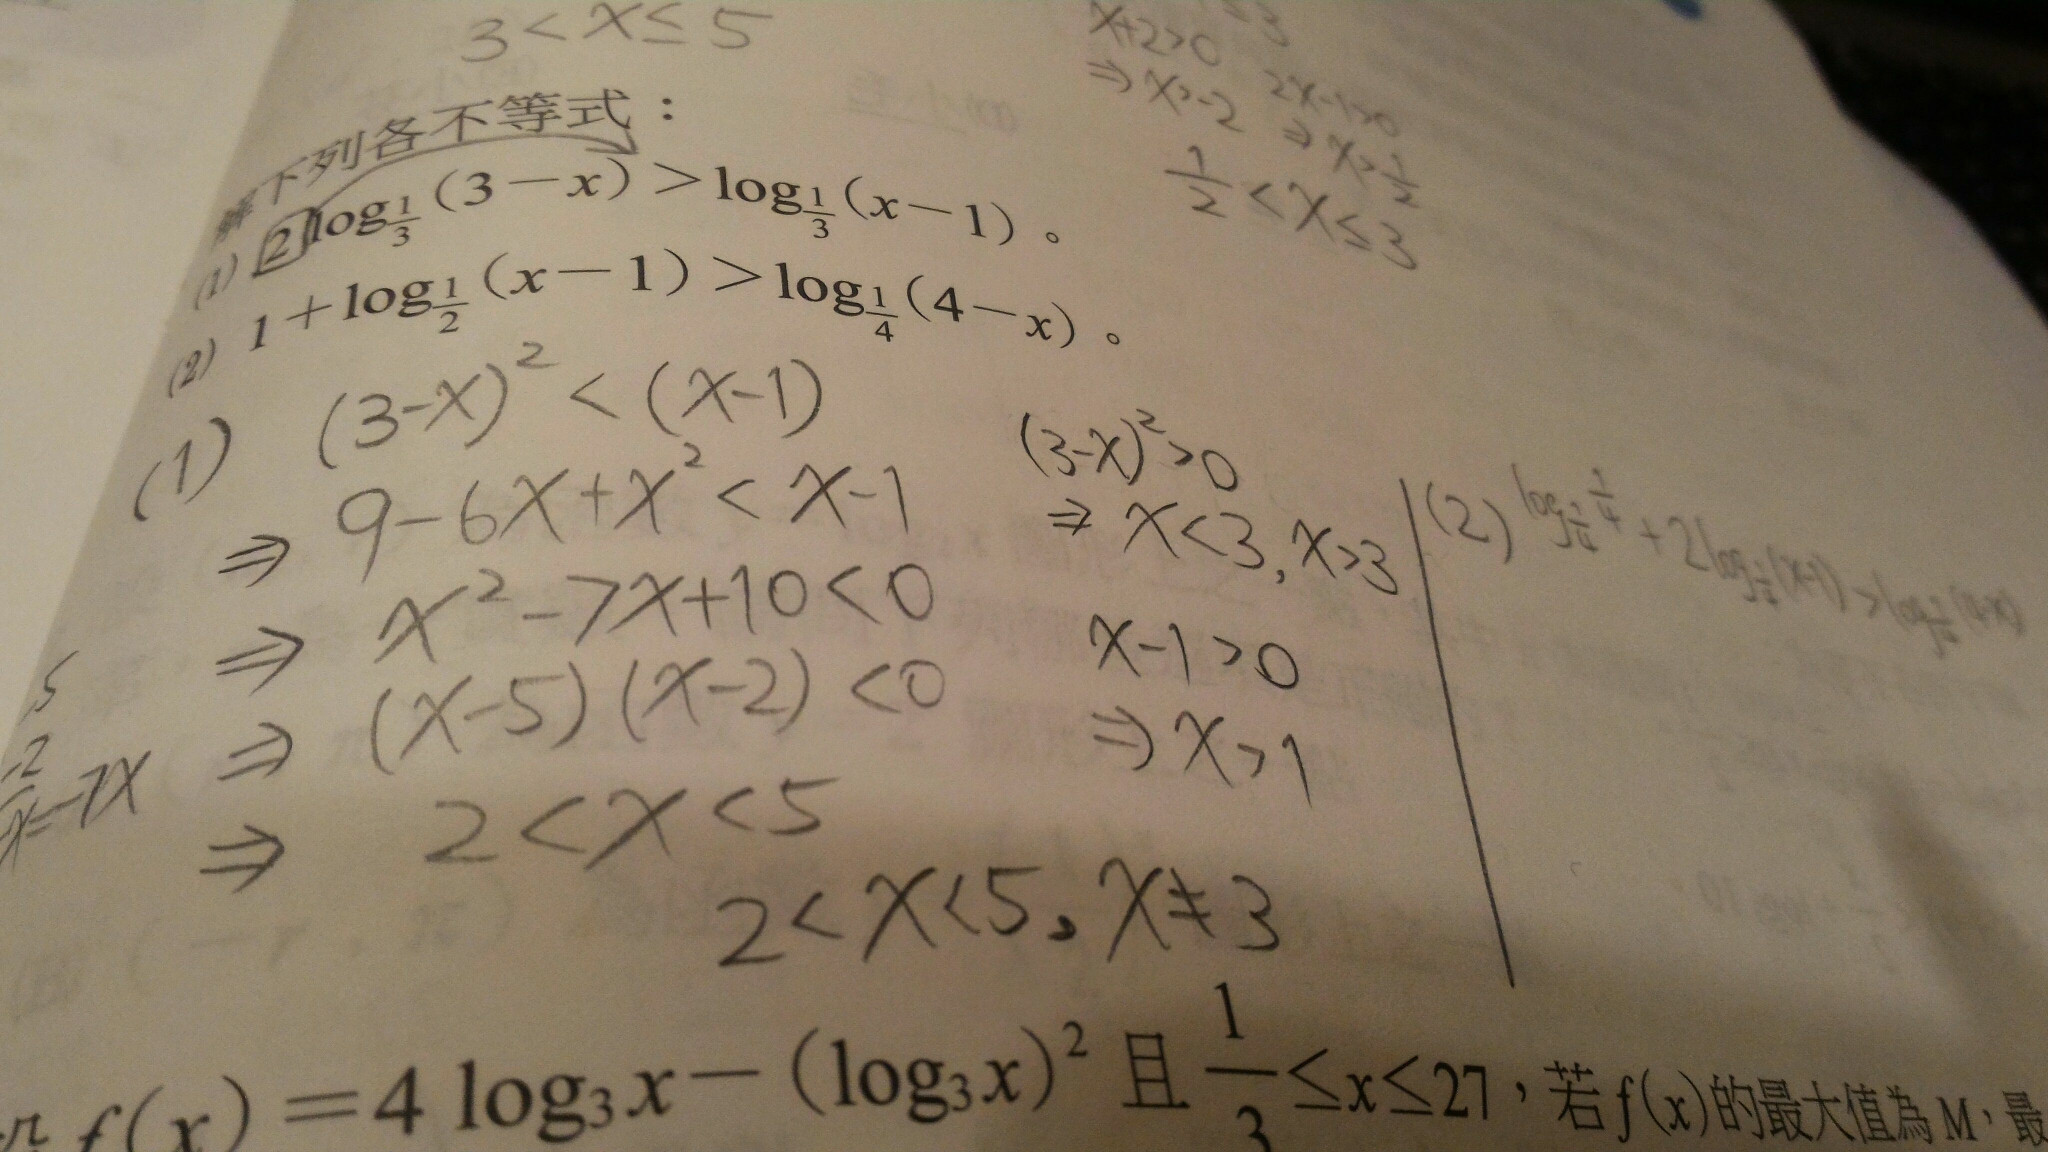 3 < x ≤ 5
x+2>0
⇒ x>-2
2x-1>0
⇒ x>1/2
1/2 < x ≤ 3
解下列各不等式：
(1) 2log_{1/3}(3－x)＞log_{1/3}(x－1)。
(2) 1＋log_{1/2}(x－1)＞log_{1/4}(4－x)。
(1) (3-x)² < (x-1)
⇒ 9-6x+x² < x-1
⇒ x²-7x+10<0
⇒ (x-5)(x-2)<0
⇒ 2<x<5
(3-x)²>0
⇒ x<3, x>3
x-1>0
⇒ x>1
2<x<5, x≠3
(2) log_{1/4} 1/4 + 2log_{1/4}(x-1) > log_{1/4}(4-x)
5
-2
-7x
f(x)＝4 log₃x－(log₃x)² 且 1/3≤x≤27，若f(x)的最大值為M，最